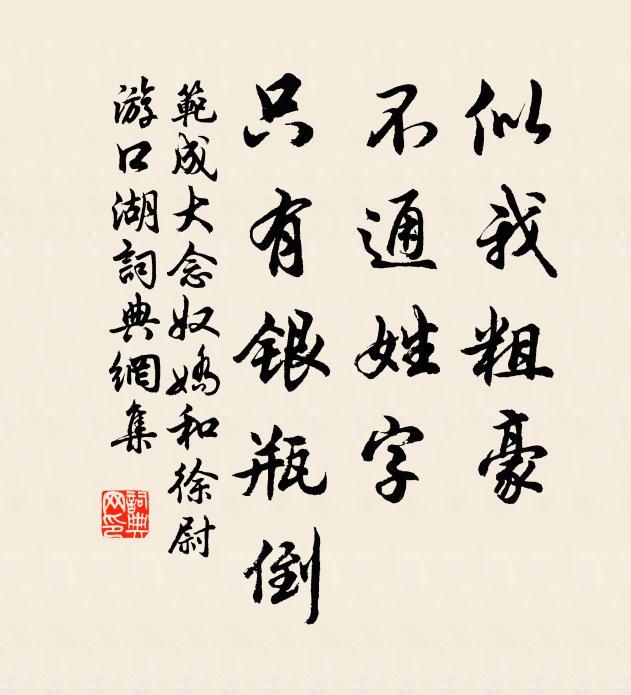 似我粗豪
不通姓字
只有銀瓶倒
範成大念奴嬌和徐尉
游口湖詞典網集
詞典
网印